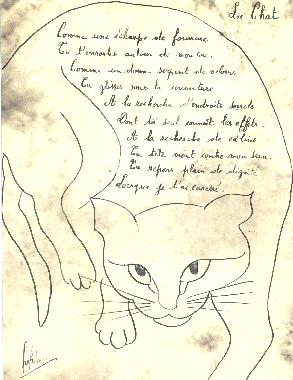 Le Chat
Comme une écharpe de fourrure
Tu t'enroules autour de mon cou.
Comme un doux serpent de velours
Tu glisses sous la couverture
A la recherche d'endroits secrets
Dont toi seul connait les effets.
A la recherche de câlins
Ta tête vient contre mon sein.
Tu repars plein de dignité
Lorsque je t'ai caressé.